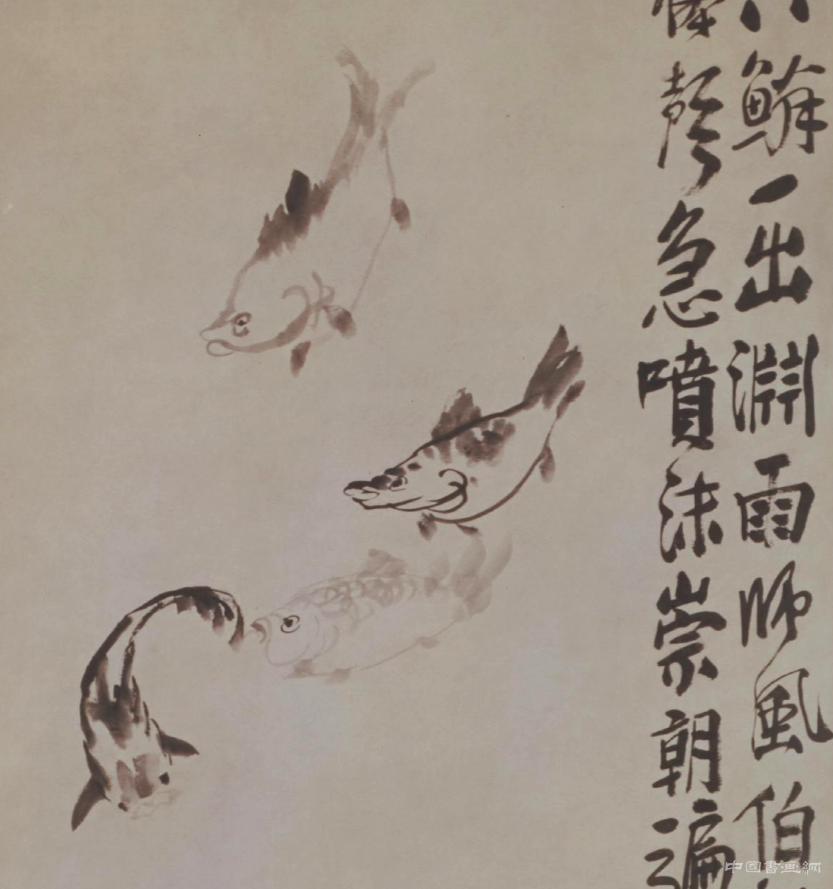 鱗一出淵雨師風伯
聲急噴沫崇朝遍
中國書画網